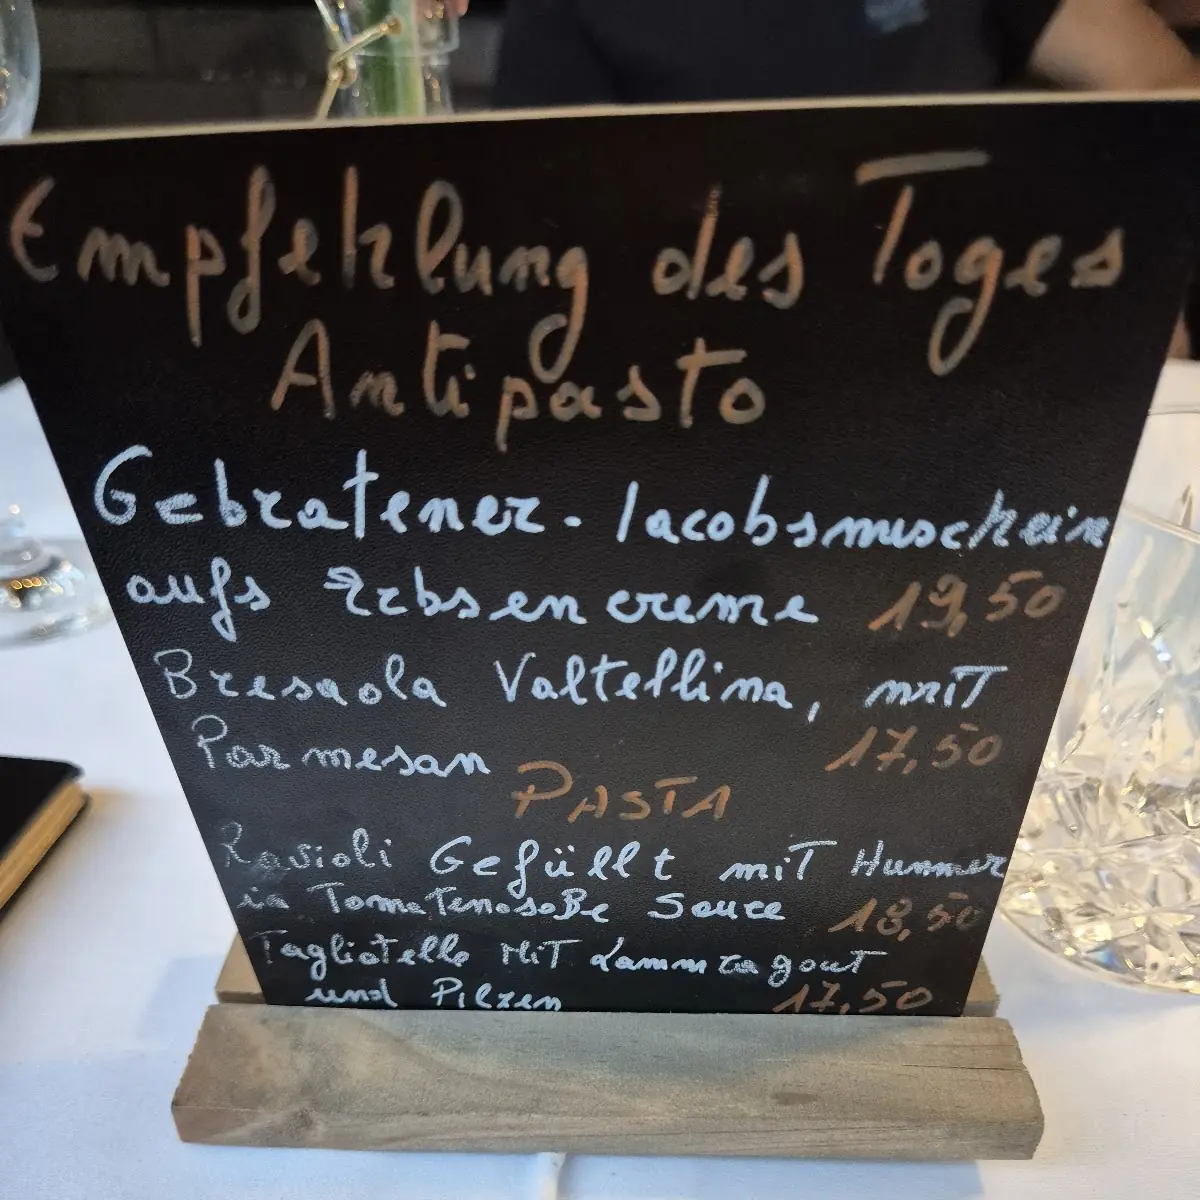 Empfehlung des Tages
Antipasto
Gebratener - Iacobsmuschein
aufs Erbsencreme 19,50
Bresaola Valtellina, mit
Parmesan 17,50
PASTA
Ravioli Gefüllt mit Hummer
in Tomatensoße Sauce 18,50
Tagliatelle Mit Lammragout
und Pilzen 17,50